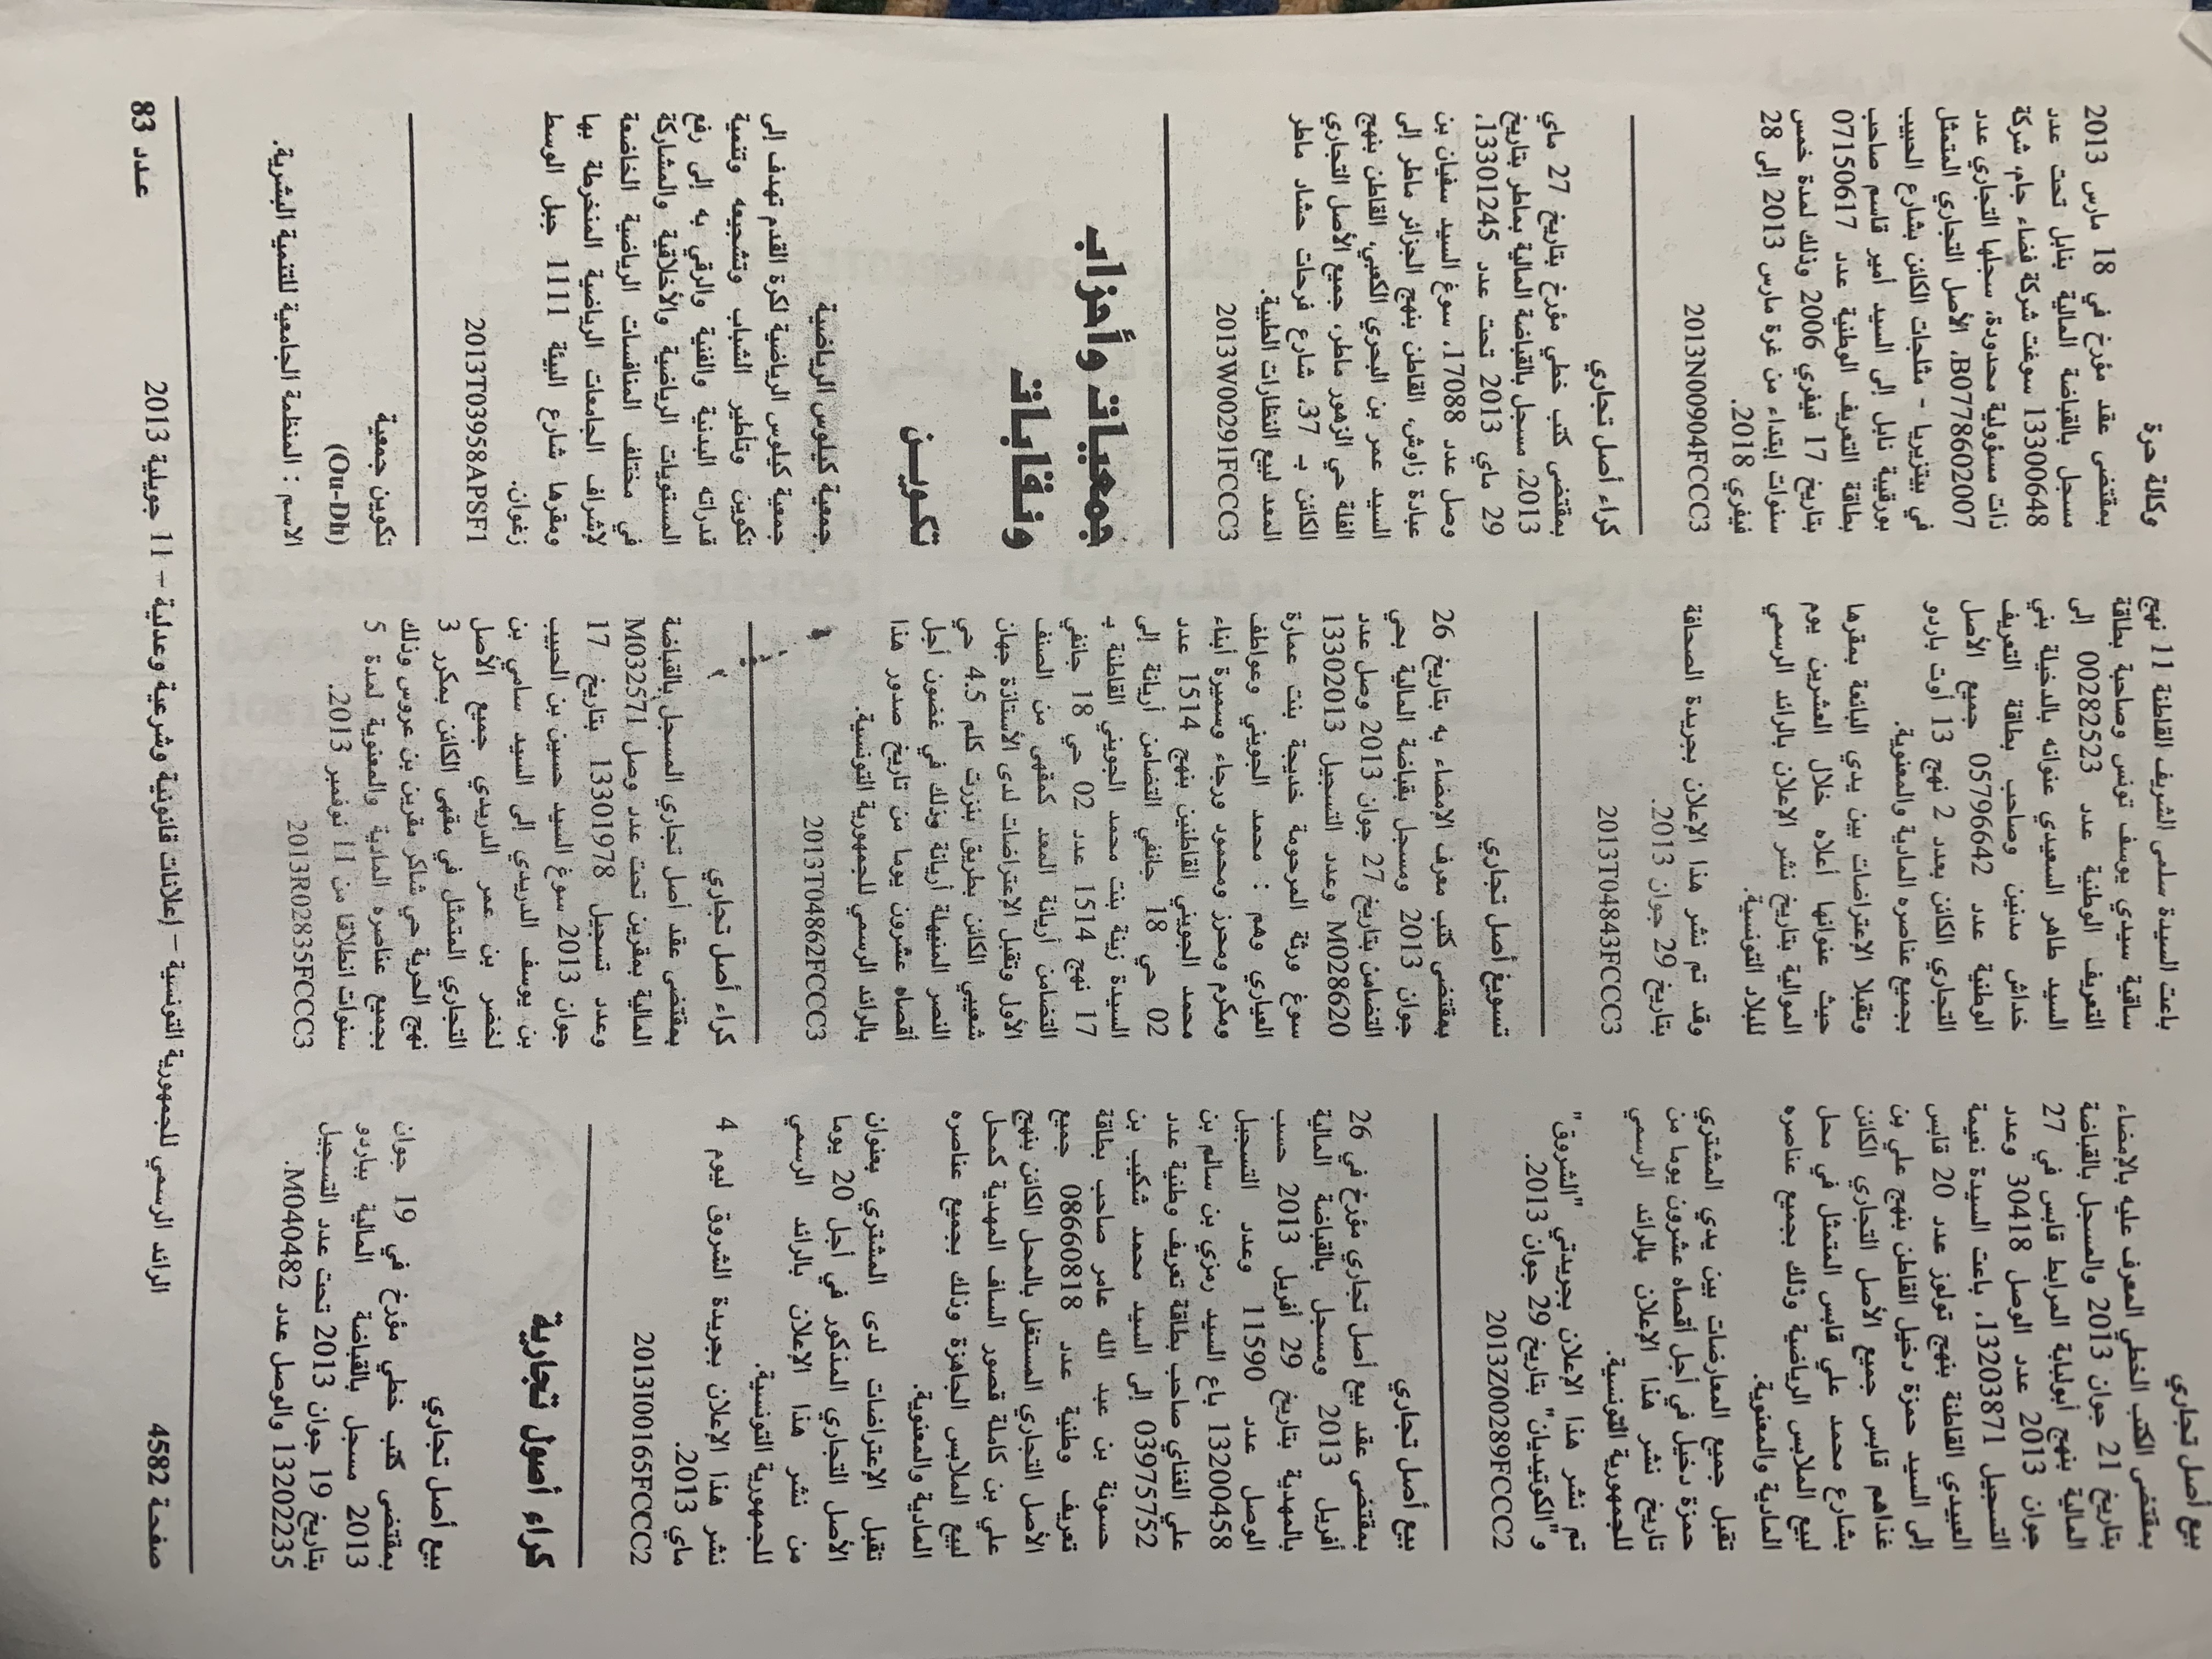 بيع أصل تجاري
بمقتضى الكتب الخطي المعرف عليه بالإمضاء
بتاريخ 21 جوان 2013 والمسجل بالقباضة
المالية بنهج أبولبابة المرابط قابس في 27
جوان 2013 عدد الوصل 30418 وعدد
التسجيل 13203871، باعت السيدة نعيمة
العبيدي القاطنة بنهج تولوز عدد 20 قابس
إلى السيد حمزة دخيل القاطن بنهج علي بن
غذاهم قابس جميع الأصل التجاري الكائن
بشارع محمد علي قابس المتمثل في محل
لبيع الملابس الرياضية وذلك بجميع عناصره
المادية والمعنوية.
تقبل جميع المعارضات بين يدي المشتري
حمزة دخيل في أجل أقصاه عشرون يوما من
تاريخ نشر هذا الإعلان بالرائد الرسمي
للجمهورية التونسية.
تم نشر هذا الإعلان بجريدتي "الشروق"
و"الكوتيديان" بتاريخ 29 جوان 2013.
2013Z00289FCCC2
بيع أصل تجاري
بمقتضى عقد بيع أصل تجاري مؤرخ في 26
أفريل 2013 ومسجل بالقباضة المالية
بالمهدية بتاريخ 29 أفريل 2013 حسب
الوصل عدد 11590 وعدد التسجيل
13200458 باع السيد رمزي بن سالم بن
علي الغناي صاحب بطاقة تعريف وطنية عدد
03975752 إلى السيد محمد شكيب بن
حسونة بن عبد الله عامر صاحب بطاقة
تعريف وطنية عدد 08660818 جميع
الأصل التجاري المستغل بالمحل الكائن بنهج
علي بن كاملة قصور الساف المهدية كمحل
لبيع الملابس الجاهزة وذلك بجميع عناصره
المادية والمعنوية.
تقبل الإعتراضات لدى المشتري بعنوان
الأصل التجاري المذكور في أجل 20 يوما
من نشر هذا الإعلان بالرائد الرسمي
للجمهورية التونسية.
نشر هذا الإعلان بجريدة الشروق ليوم 4
ماي 2013.
2013I00165FCCC2
كراء أصول تجارية
بيع أصل تجاري
بمقتضى كتب خطي مؤرخ في 19 جوان
2013 مسجل بالقباضة المالية بباردو
بتاريخ 19 جوان 2013 تحت عدد التسجيل
13202235 والوصل عدد M040482.
باعت السيدة سلمى الشريف القاطنة 11 نهج
ساقية سيدي يوسف تونس وصاحبة بطاقة
التعريف الوطنية عدد 00282523 إلى
السيد طاهر السعيدي عنوانه بالدخيلة بني
خداش مدنين وصاحب بطاقة التعريف
الوطنية عدد 05796642 جميع الأصل
التجاري الكائن بعدد 2 نهج 13 أوت باردو
بجميع عناصره المادية والمعنوية.
وتقبلا الإعتراضات بين يدي البائعة بمقرها
حيث عنوانها أعلاه خلال العشرين يوم
الموالية بتاريخ نشر الإعلان بالرائد الرسمي
للبلاد التونسية.
وقد تم نشر هذا الإعلان بجريدة الصحافة
بتاريخ 29 جوان 2013.
2013T04843FCCC3
تسويغ أصل تجاري
بمقتضى كتب معرف الإمضاء به بتاريخ 26
جوان 2013 ومسجل بقباضة المالية بحي
التضامن بتاريخ 27 جوان 2013 وصل عدد
M028620 وعدد التسجيل 13302013
سوغ ورثة المرحومة خديجة بنت عمارة
العياري وهم : محمد الجويني وعواطف
ومكرم ومحرز ومحمود ورجاء وسميرة أبناء
محمد الجويني القاطنين بنهج 1514 عدد
02 حي 18 جانفي التضامن أريانة إلى
السيدة زينة بنت محمد الجويني القاطنة بـ
17 نهج 1514 عدد 02 حي 18 جانفي
التضامن أريانة المعد كمقهى من الصنف
الأول وتقبل الإعتراضات لدى الأستاذة جهان
شعيبي الكائن بطريق بنزرت كلم 4.5 حي
النصر المنيهلة أريانة وذلك في غضون أجل
أقصاه عشرون يوما من تاريخ صدور هذا
بالرائد الرسمي للجمهورية التونسية.
2013T04862FCCC3
كراء أصل تجاري
بمقتضى عقد أصل تجاري المسجل بالقباضة
المالية بمقرين تحت عدد وصل M032571
وعدد تسجيل 13301978 بتاريخ 17
جوان 2013 سوغ السيد حسين بن الحبيب
بن يوسف الدريدي إلى السيد سامي بن
لخضر بن عمر الدريدي جميع الأصل
التجاري المتمثل في مقهى الكائن بمكرر 3
نهج الحرية حي شاكر مقرين بن عروس وذلك
بجميع عناصره المادية والمعنوية لمدة 5
سنوات انطلاقا من 11 نوفمبر 2013.
2013R02835FCCC3
وكالة حرة
بمقتضى عقد مؤرخ في 18 مارس 2013
مسجل بالقباضة المالية بنابل تحت عدد
13300648 سوغت شركة فضاء جام، شركة
ذات مسؤولية محدودة، سجلها التجاري عدد
B0778602007، الأصل التجاري المتمثل
في بيتزيريا - مثلجات الكائن بشارع الحبيب
بورقيبة نابل إلى السيد أمير قاسم صاحب
بطاقة التعريف الوطنية عدد 07150617
بتاريخ 17 فيفري 2006 وذلك لمدة خمس
سنوات إبتداء من غرة مارس 2013 إلى 28
فيفري 2018.
2013N00904FCCC3
كراء أصل تجاري
بمقتضى كتب خطي مؤرخ بتاريخ 27 ماي
2013، مسجل بالقباضة المالية بماطر بتاريخ
29 ماي 2013 تحت عدد 13301245،
وصل عدد 17088، سوغ السيد سفيان بن
عبادة زاوش، القاطن بنهج الجزائر ماطر إلى
السيد عمر بن البجري الكعبي، القاطن بنهج
الفلة حي الزهور ماطر، جميع الأصل التجاري
الكائن بـ 37، شارع فرحات حشاد ماطر
المعد لبيع النظارات الطبية.
2013W00291FCCC3
جمعيات وأحزاب
ونقابات
تكويـــن
جمعية كيلوس الرياضية
جمعية كيلوس الرياضية لكرة القدم تهدف إلى
تكوين وتأطير الشباب وتشجيعه وتنمية
قدراته البدنية والفنية والرقي به إلى رفع
المستويات الرياضية والأخلاقية والمشاركة
في مختلف المنافسات الرياضية الخاضعة
لإشراف الجامعات الرياضية المنخرطة بها
ومقرها شارع البيئة 1111 جبل الوسط
زغوان.
2013T03958APSF1
تكوين جمعية
(Ou-Dh)
الاسم : المنظمة الجامعية للتنمية البشرية.
صفحة 4582 الرائد الرسمي للجمهورية التونسية – إعلانات قانونية وشرعية وعدلية – 11 جويلية 2013 عـدد 83